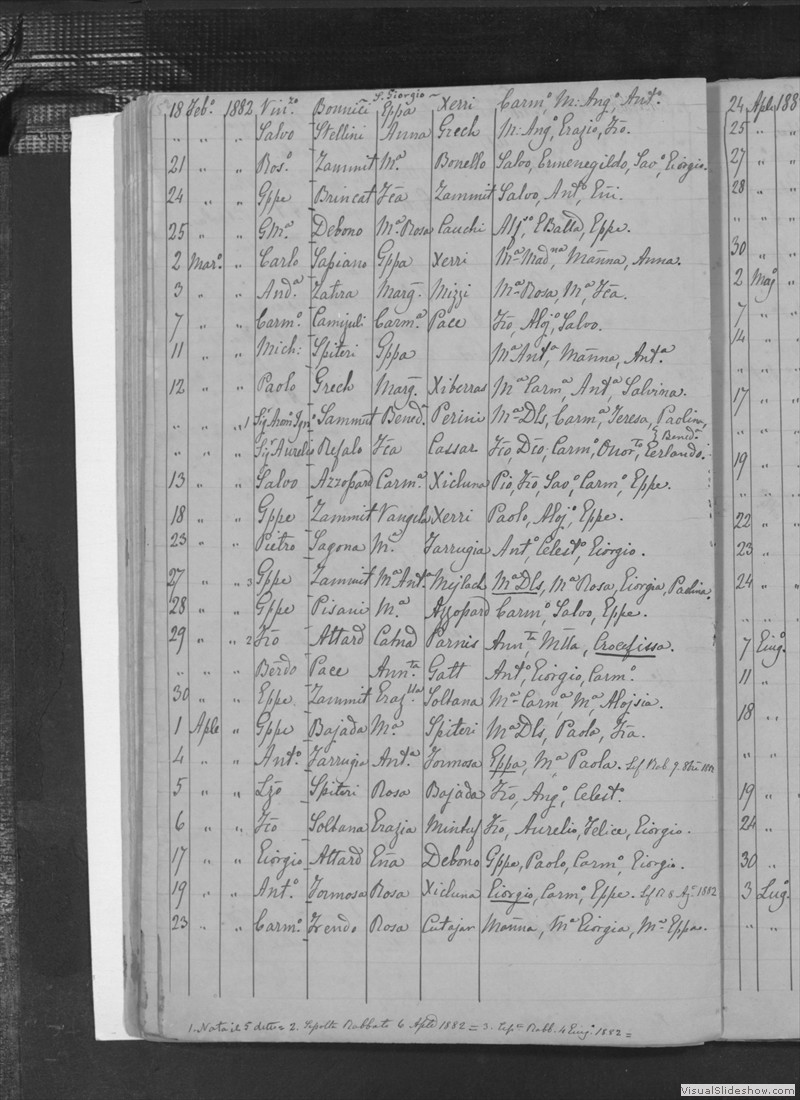 S. Giorgio
18 Feb.º 1882 Vinz.º Bonnici Eppa Xerri Carm.º M: Ang.º Ant.º
„ „ „ Salvo Stellini Anna Grech M: Ang.º Erazio, Fco.
21 „ „ Ros.º Zammit M.ª Bonello Salvo, Ermenegildo, Sav.º Giorgio.
24 „ „ Gppe Brincat Fca Zammit Salvo, Ant.º
25 „ „ G.M.ª Debono M.ª Rosa Cauchi GBatta, Eppe.
2 Mar.º „ Carlo Sapiano Gppa Xerri M.ª Mad.na, Mãnna, Anna.
3 „ „ And.ª Zahra Marg. Mizzi M.ª Rosa, M.ª Fca.
7 „ „ Carm.º Camijuli Carm.ª Pace Fco, Aloj.º Salvo.
11 „ „ Mich: Spiteri Gppa M.ª Ant.ª Mãnna, Ant.ª
12 „ „ Paolo Grech Marg. Xiberras M.ª Carm.ª Ant.ª Salvina.
„ „ „ 1 Sammut Bened.ª Perini M.ª Dls, Carm.ª Teresa, Paolina,
& Bened.ª
„ „ „ Sigr Aurelio Refalo Fca Cassar Fco, Dco, Carm.º Onor.to Gerlando.
13 „ „ Salvo Azzopard Carm.ª Xicluna Pio, Fco, Sav.º Carm.º Eppe.
18 „ „ Gppe Zammit Vangela Xerri Paolo, Aloj.º Eppe.
23 „ „ Pietro Sagona M.ª Farrugia Ant.º Celest.º Giorgio.
27 „ „ 3 Gppe Zammit M.ª Ant.ª Mejlach M.ª Dls, M.ª Rosa, Giorgia, Paolina.
28 „ „ Gppe Pisani M.ª Azzopard Carm.º Salvo, Eppe.
29 „ „ 2 Fco Attard Catnã Parnis Ann.ta Mtta, Crocefissa.
„ „ „ Berdo Pace Ann.ta Gatt Ant.º Giorgio, Carm.º
30 „ „ Eppe Zammit Graz.lla Soltana M.ª Carm.ª M.ª Alojsia.
1 Aple „ Gppe Bajada M.ª Spiteri M.ª Dls, Paola, Fca.
4 „ „ Ant.º Farrugia Ant.ª Formosa Eppa, M.ª Paola.
5 „ „ Lzo Spiteri Rosa Bajada Fco, Ang.º Celest.º
6 „ „ Fco Soltana Grazia Mintuf Fco, Aurelio, Felice, Giorgio.
17 „ „ Giorgio Attard Debono Gppe, Paolo, Carm.º Giorgio.
19 „ „ Ant.º Formosa Rosa Xicluna Giorgio, Carm.º Eppe. 1882
23 „ „ Carm.º Frendo Rosa Cutajar Mãnna, M.ª Giorgia, M.ª Eppa.
1. Nata il 5 detto = 2. Sepolta Rabbato 6 Aple 1882 = 3. Rabb. 4 Giug.º 1882 =
24 Aple 188
25 „
27 „
28 „
„ „
30 „
2 Maj.º
7 „
14 „
17 „
„ „
19 „
„ „
22 „
23 „
24 „
„ „
7 Giug.º
11 „
18 „
„ „
19 „
24 „
30 „
3 Lug.º
VisualSlideshow.com